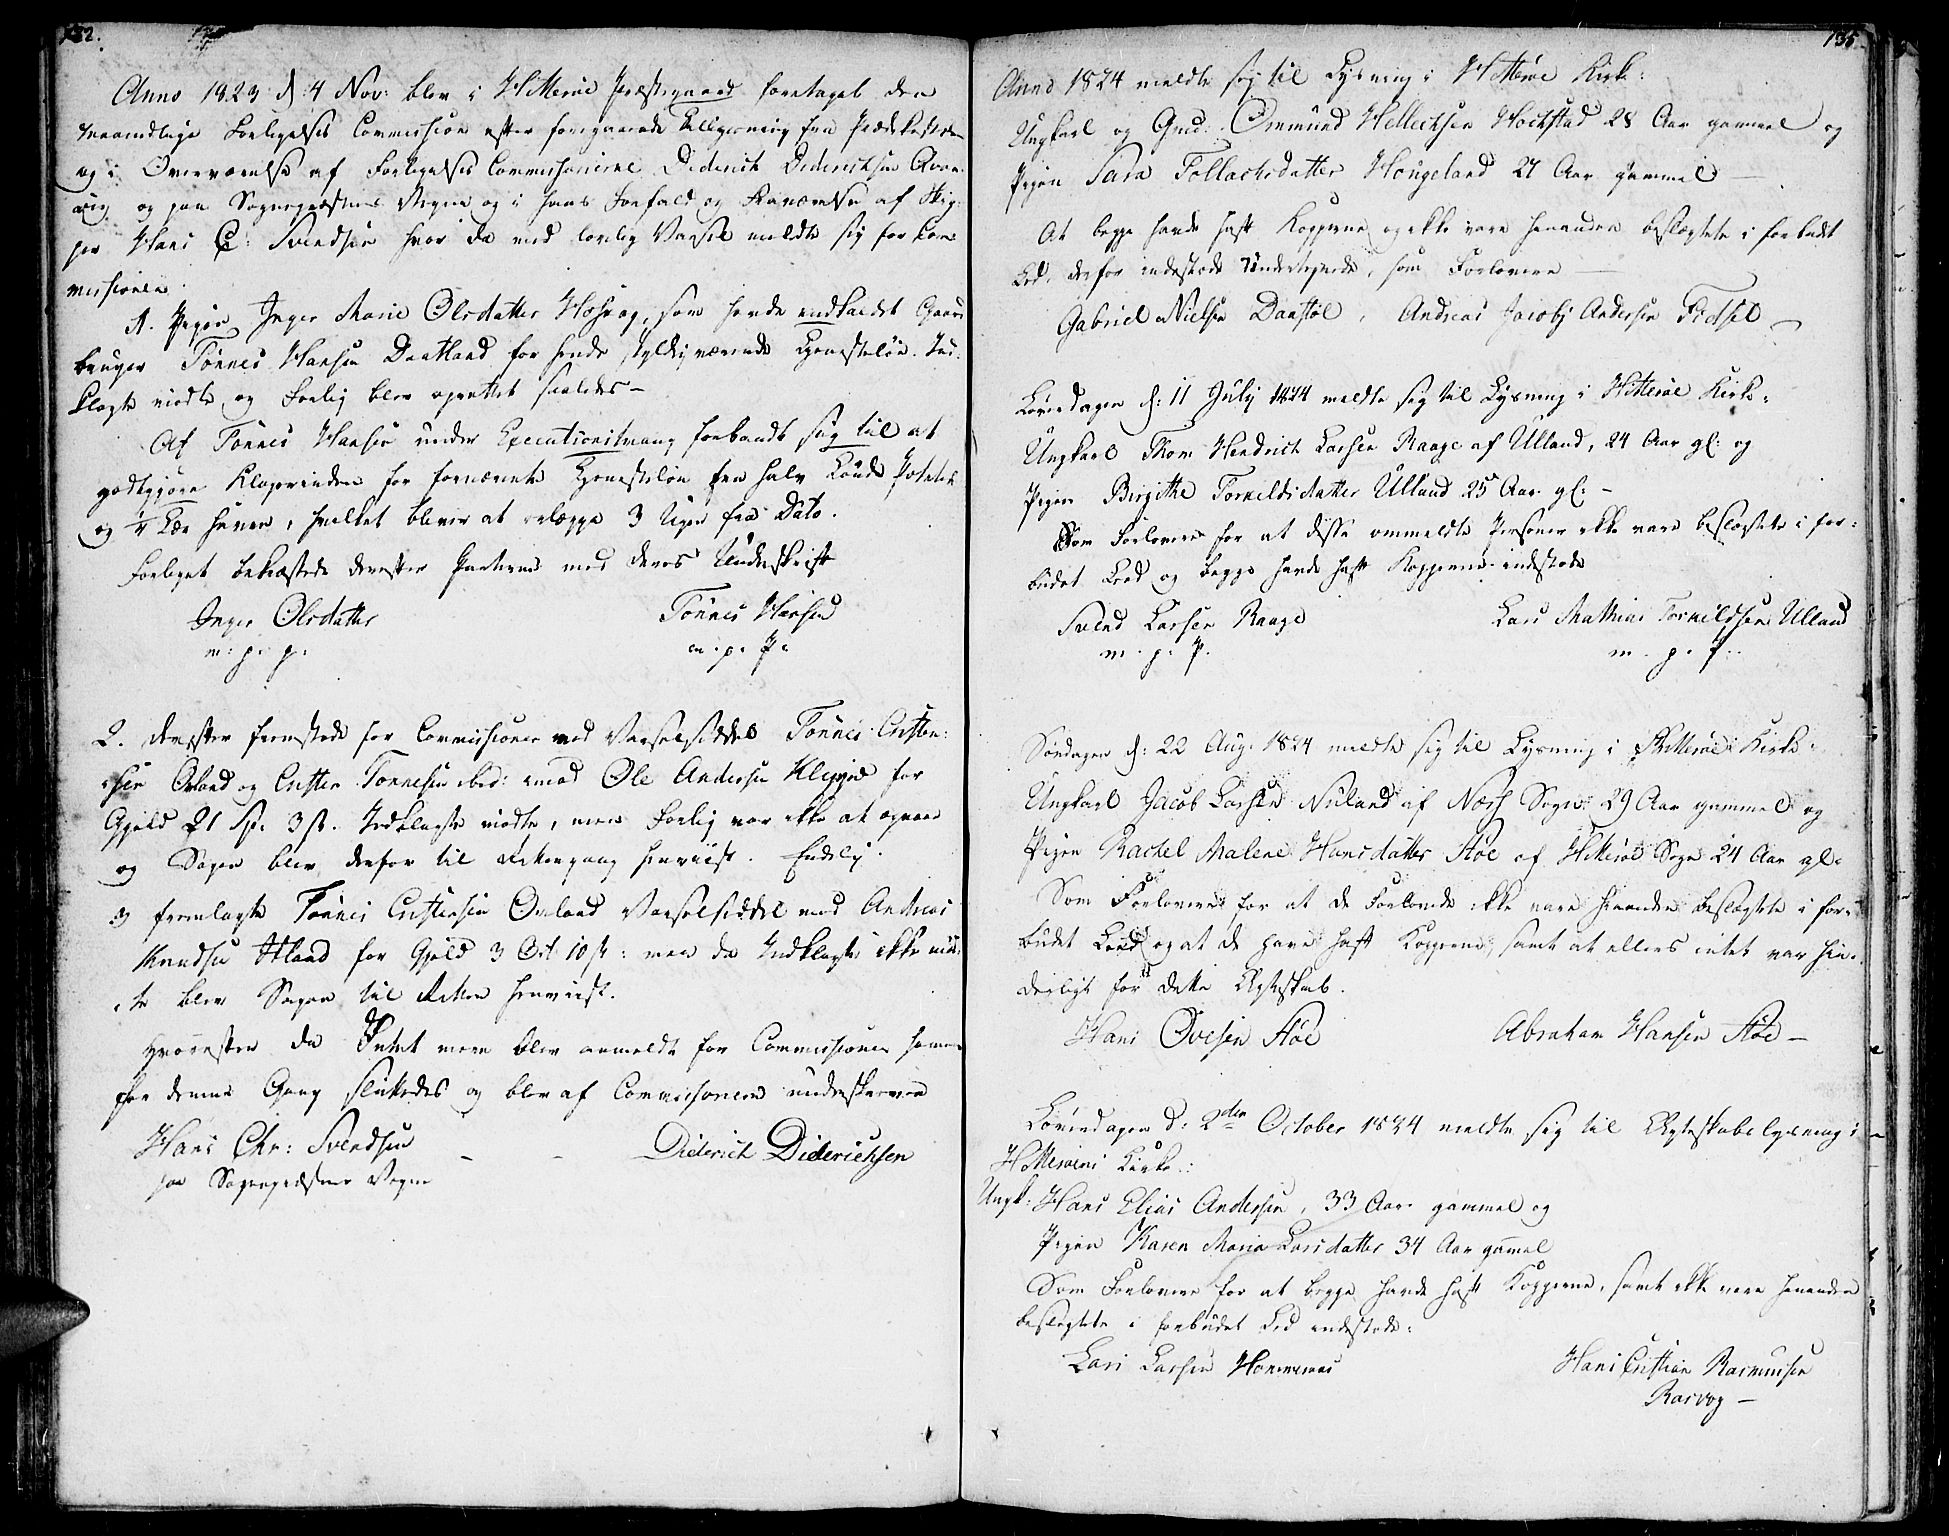 Anno 1823 d: 4 Nov: blev i Hitterøe Præstegaard foretaget den
maanedlige Forligelses Commission efter foregaaende Tillysning fra Prædikestolen
og i Overværelse af Forligelses Commissionerne Diderich Diderichsen
og paa Sognepræstens Vegne og i hans Forfald og Fraværelse af
Hans C: Svendsen hvor da med lovlig Varsel meldte sig for Com-
missionen:
1. Pigen Inger Marie Olsdatter, som havde indkaldet Gaard
bruger Tønnes Hansen Daatland for hende skyldig værende Tjenesteløn. Ind-
klagte mødte og Forlig blev oprettet saaledes –
At Tønnes Hansen under Executionstvang forbandt sig til at
godtgjøre Klagerinden for fornævnte Tjenesteløn en halv Tønde Poteter
og 1/4, hvilket bliver at erlægge 3 Uger fra Dato.
Forliget bekræftede derefter Parterne med deres Underskrift
Inger Olsdatter Tønnes Hansen
m: p: p: m: p: P:
2. Derefter fremstode for Commissionen med Varselseddel Tønnes Christen-
sen Øvland og Christen Tønnesen ibid: imod Ole Andersen Kleppe for
Gjæld 21 Sp: 3 s. Indklagte mødte, men Forlig var ikke at opnaae
og Sagen blev derfor til Rettergang henviist. Endelig
3 fremlagte Tønnes Christensen Øvland Varselseddel mod Andreas
Knudsen for Gjæld 3 Ort 10 s: men da Indklagte ikke mød-
te blev Sagen til Retten henviist.
Hvorefter da Intet mere blev anmeldt for Commissionen samme
for denne Gang sluttedes og blev af Commissionen underskreven
Hans Chr: Svendsen – – Diderich Diderichsen
paa Sognepræstens Vegne
135
Anno 1824 meldte sig til Lysning i Hitterøe Kirke:
Ungkarl og Gmd: Ommund Hellechsen Hochstad 28 Aar gammel og
Pigen Sara Tollachsdatter Hougeland 27 Aar gammel –
At begge havde haft Kopperne og ikke vare hinanden beslægtede i forbudt
Led, derfor indestode Undertegnede, som Forlovere –
Gabriel Nielsen Daastøl, Andreas Jacobj Andersen Fidsel –
Løverdagen d: 11 July 1824 meldte sig til Lysning i Hitterøe Kirke:
Ungkarl Thom Hendrich Larsen Raage af Ulland, 24 Aar gl: og
Pigen Birgithe Torkildsdatter Ulland 25 Aar gl: –
Som Forlovere for at disse ommeldte Personer ikke vare beslægtede i for-
budet Leed og begge havde haft Kopperne indestode
Svend Larsen Raage Lars Mathias Torkildsen Ulland
m. p. P. m. p. p.
Søndagen d: 22 Aug: 1824 meldte sig til Lysning i Hitterøe Kirke:
Ungkarl Jacob Larsen Nuland af Næss Sogn 29 Aar gammel og
Pigen Rachel Malene Hansdatter Støe af Hitterøe Sogn 24 Aar gl:
Som Forlovere for at de Forlovede ikke vare hinanden beslægtede i for-
budet Leed og at de have haft Kopperne, samt at ellers intet var hin-
derligt for dette Ægteskab.
Hans Ovesen Støe Abraham Hansen Støe –
Løverdagen d: 2den October 1824 meldte sig til Ægteskabs lysning i
Hitterøens Kirke:
Ungk: Hans Elias Andersen, 33 Aar gammel og
Pigen Karen Maria Larsdatter 34 Aar gamel
Som Forlovere for at begge havde haft Kopperne, samt ikke vare hinanden
beslægtede i forbudet Led indestode:
Lars Larsen Hans Christian Rasmussen
Rasvog –